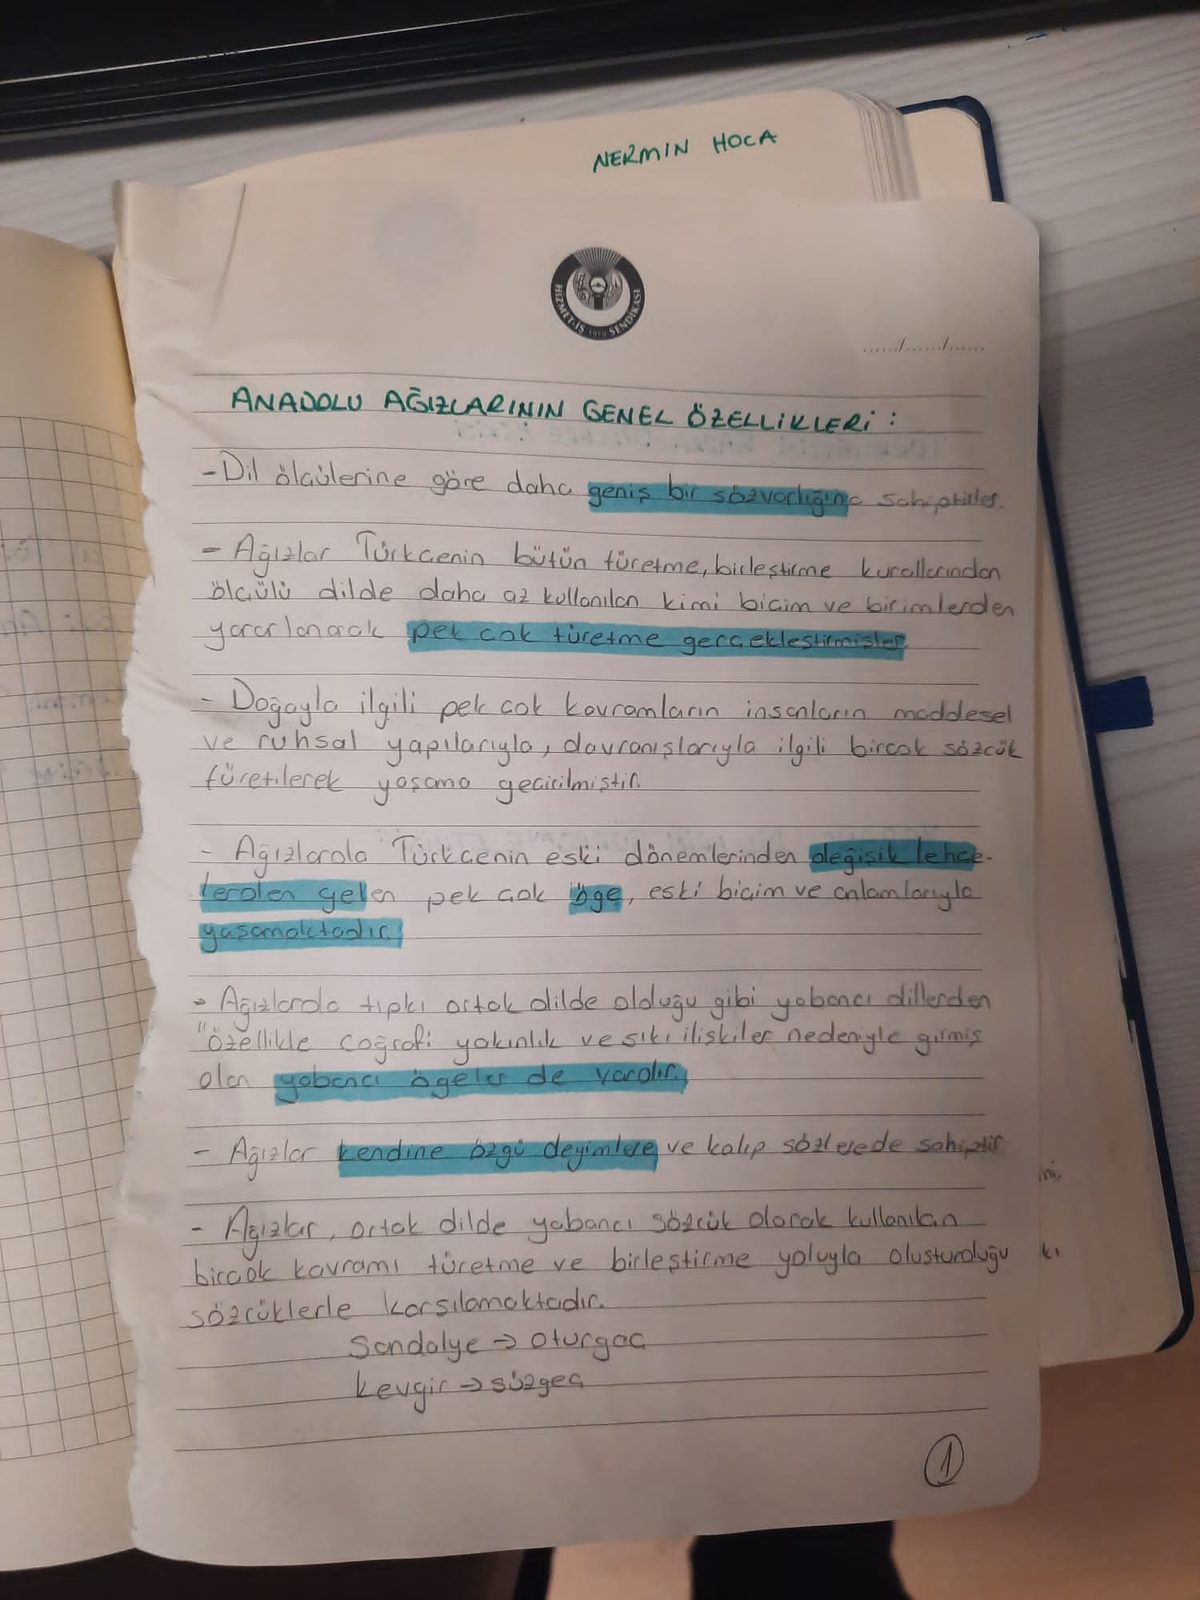 NERMİN HOCA
HİZMET-İŞ 1979 SENDİKASI
...../...../.....
ANADOLU AĞIZLARININ GENEL ÖZELLİKLERİ:
-Dil ölçülerine göre daha geniş bir sözvarlığına sahiptirler.
- Ağızlar Türkçenin bütün türetme, birleştirme kurallarından
ölçülü dilde daha az kullanılan kimi biçim ve birimlerden
yararlanarak pek çok türetme gerçekleştirmişler.
- Doğayla ilgili pek çok kavramların insanların maddesel
ve ruhsal yapılarıyla, davranışlarıyla ilgili birçok sözcük
türetilerek yaşama geçirilmiştir.
- Ağızlarda Türkçenin eski dönemlerinden değişik lehçe-
lerden gelen pek çok öge, eski biçim ve anlamlarıyla
yaşamaktadır.
- Ağızlarda tıpkı ortak dilde olduğu gibi yabancı dillerden
"özellikle coğrafi yakınlık ve sıkı ilişkiler nedeniyle girmiş
olan yabancı ögeler de vardır.
- Ağızlar kendine özgü deyimlere ve kalıp sözlerede sahiptir
- Ağızlar, ortak dilde yabancı sözcük olarak kullanılan
birçok kavramı türetme ve birleştirme yoluyla oluşturduğu
sözcüklerle karşılamaktadır.
Sandalye → oturgaç
Kevgir → süzgeç
1